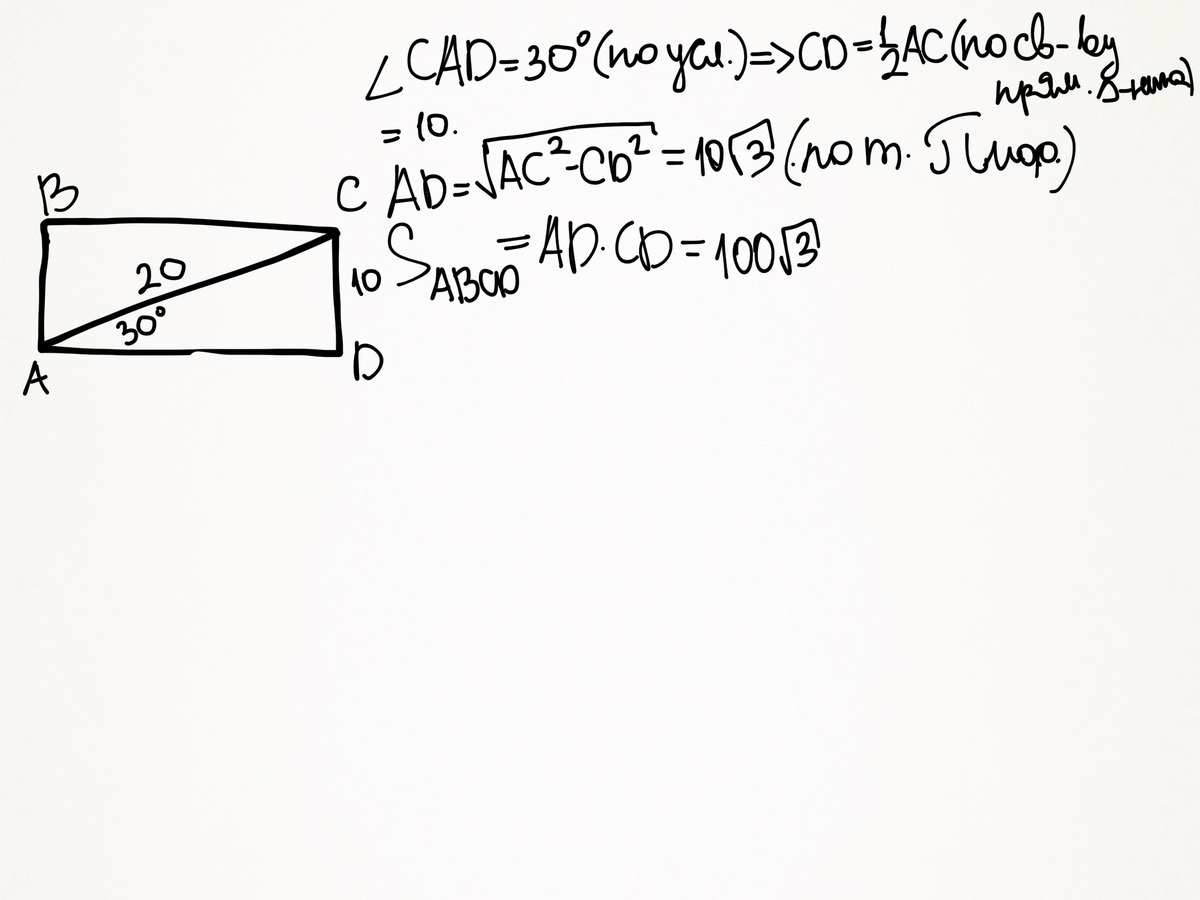 ∠CAD=30°(по усл.)=>CD=½AC(по св-ву
прям. Δ-ника)
= 10.
AD=√AC²-CD² = 10√3 (по т. Пифор.)
S ABCD = AD·CD = 100√3
B
C
20
10
30°
A
D